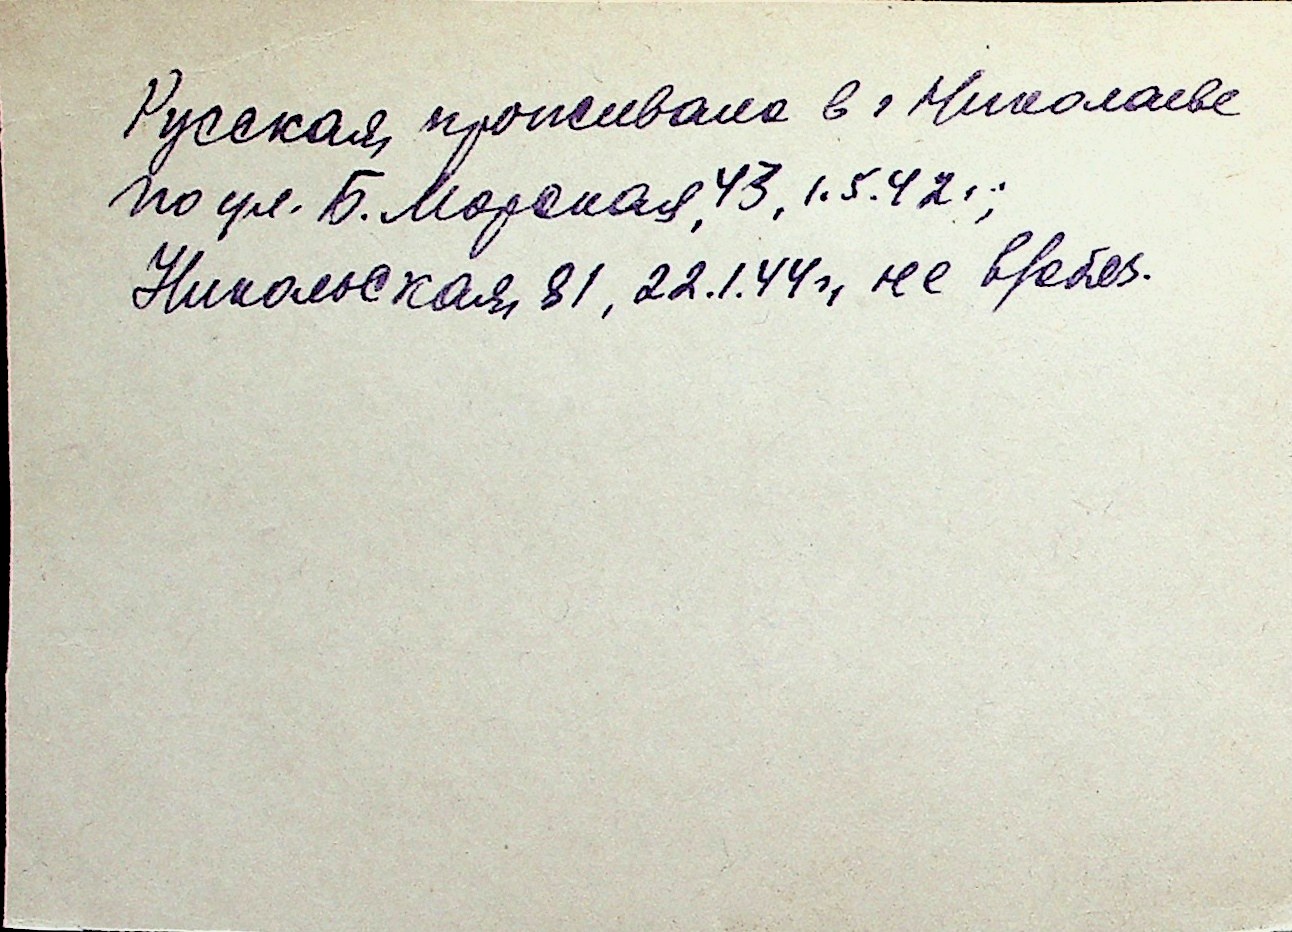 Русская, проживала в г Николаеве
по ул. Б. Морская, 43, 1.5.42г.;
Никольская, 81, 22.1.44г., не